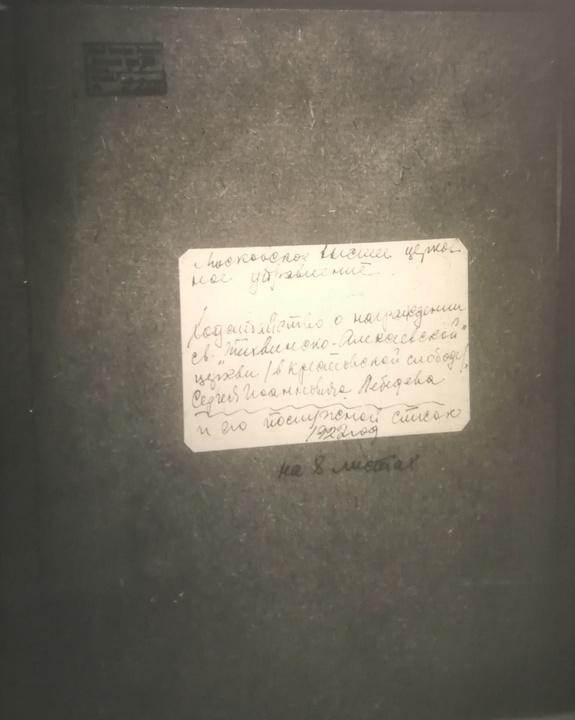 Московское высшее церков
ное управление.
Ходатайство о награждении
св. "Тихвинско-Алексеевской"
церкви /в кресто́вской слободе/,
Сергея Иоанновича Лебедева
и его послужной список
1922 год
на 8 листах